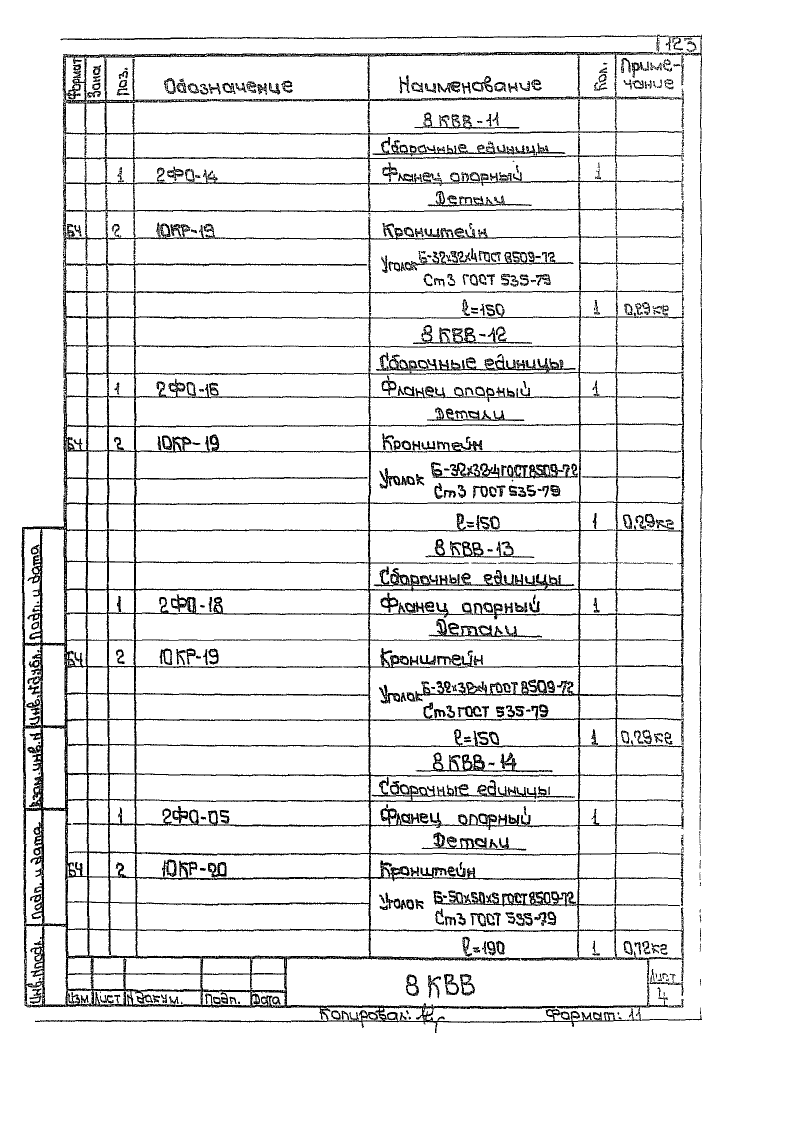 123
Формат Зона Поз. Обозначение Наименование Кол. Приме-
чание
8 КВВ-11
Сборочные единицы
1 2ФО-14 Фланец опорный 1
Детали
БЧ 2 10КР-19 Кронштейн
Уголок Б-32х32х4 ГОСТ 8509-72
Ст3 ГОСТ 535-79
ℓ=150 1 0,29кг
8 КВВ-12
Сборочные единицы
1 2ФО-16 Фланец опорный 1
Детали
БЧ 2 10КР-19 Кронштейн
Уголок Б-32х32х4 ГОСТ 8509-72
Ст3 ГОСТ 535-79
ℓ=150 1 0,29кг
8 КВВ-13
Сборочные единицы
1 2ФО-18 Фланец опорный 1
Детали
БЧ 2 10КР-19 Кронштейн
Уголок Б-32х32х4 ГОСТ 8509-72
Ст3 ГОСТ 535-79
ℓ=150 1 0,29кг
8 КВВ-14
Сборочные единицы
1 2ФО-05 Фланец опорный 1
Детали
БЧ 2 10КР-20 Кронштейн
Уголок Б-50х50х5 ГОСТ 8509-72
Ст3 ГОСТ 535-79
ℓ=190 1 0,72кг
Подп. и дата
Инв.№ дубл.
Взам.инв.№
Подп. и дата
Инв.№подл.
Изм Лист № докум. Подп. Дата
8 КВВ
Лист
4
Копировал: Формат: 11